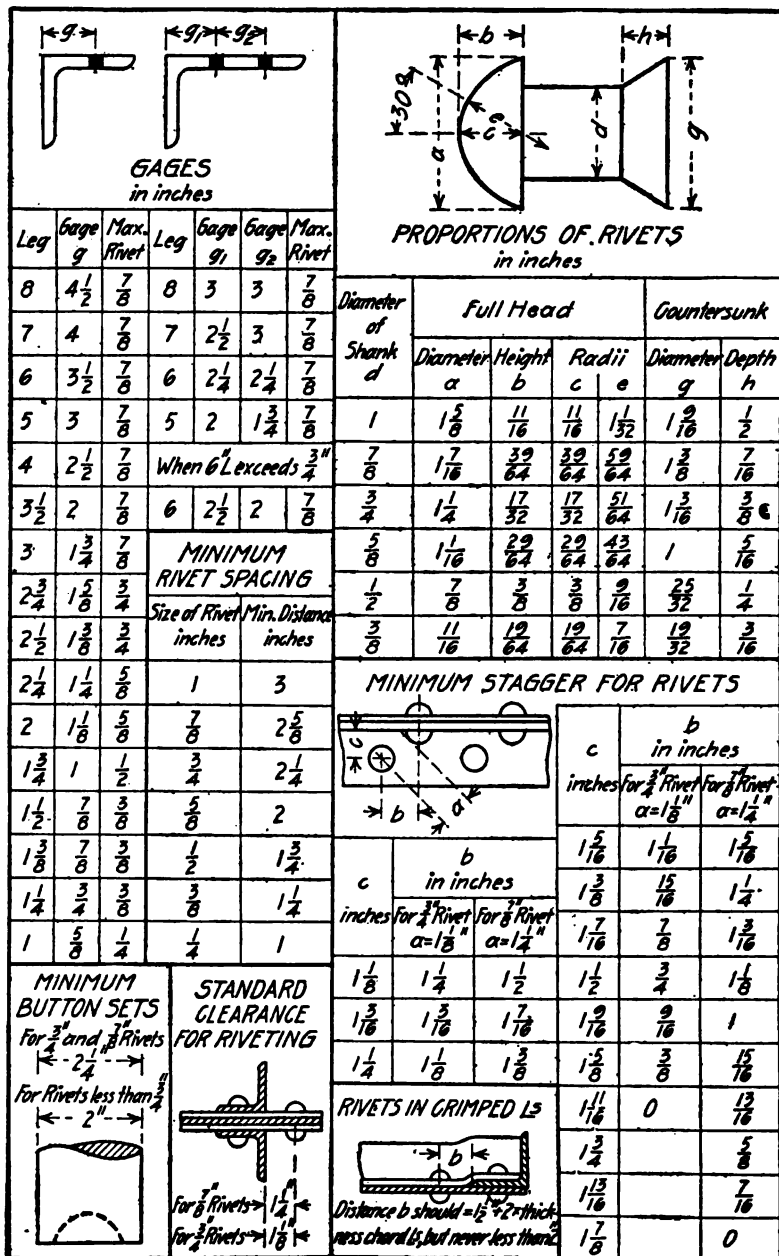 g g₁ g₂
GAGES
in inches
Leg Gage g Max. Rivet Leg Gage g₁ Gage g₂ Max. Rivet
8 4 1/2 7/8 8 3 3 7/8
7 4 7/8 7 2 1/2 3 7/8
6 3 1/2 7/8 6 2 1/4 2 1/4 7/8
5 3 7/8 5 2 1 3/4 7/8
4 2 1/2 7/8 When 6" L exceeds 3/4"
3 1/2 2 7/8 6 2 1/2 2 7/8
3 1 3/4 7/8
2 3/4 1 5/8 3/4
2 1/2 1 3/8 3/4
2 1/4 1 1/4 5/8
2 1 1/8 5/8
1 3/4 1 1/2
1 1/2 7/8 3/8
1 3/8 7/8 3/8
1 1/4 3/4 3/8
1 5/8 1/4
MINIMUM
RIVET SPACING
Size of Rivet Min. Distance
inches inches
1 3
7/8 2 5/8
3/4 2 1/4
5/8 2
1/2 1 3/4
3/8 1 1/4
1/4 1
MINIMUM
BUTTON SETS
For 3/4" and 7/8" Rivets
2 1/4"
For Rivets less than 3/4"
2"
STANDARD
CLEARANCE
FOR RIVETING
For 7/8" Rivets 1 1/4"
For 3/4" Rivets 1 1/8"
b h
30° a c e d g
PROPORTIONS OF RIVETS
in inches
Diameter of Shank d Full Head Countersunk
Diameter a Height b Radii c e Diameter g Depth h
1 1 5/8 11/16 11/16 1 1/32 1 9/16 1/2
7/8 1 7/16 39/64 39/64 59/64 1 3/8 7/16
3/4 1 1/4 17/32 17/32 51/64 1 3/16 3/8
5/8 1 1/16 29/64 29/64 43/64 1 5/16
1/2 7/8 3/8 3/8 9/16 25/32 1/4
3/8 11/16 19/64 19/64 7/16 19/32 3/16
MINIMUM STAGGER FOR RIVETS
c b a
c inches b in inches
For 3/4" Rivet a=1 1/8" For 7/8" Rivet a=1 1/4"
1 1/8 1 1/4 1 1/2
1 3/16 1 3/16 1 7/16
1 1/4 1 1/8 1 3/8
c inches b in inches
For 3/4" Rivet a=1 1/8" For 7/8" Rivet a=1 1/4"
1 5/16 1 1/16 1 5/16
1 3/8 15/16 1 1/4
1 7/16 7/8 1 3/16
1 1/2 3/4 1 1/8
1 9/16 9/16 1
1 5/8 3/8 15/16
1 11/16 0 13/16
1 3/4 5/8
1 13/16 7/16
1 7/8 0
RIVETS IN CRIMPED Ls
b
Distance b should = 1 1/2" + 2 = thick-
ness chord Ls, but never less than